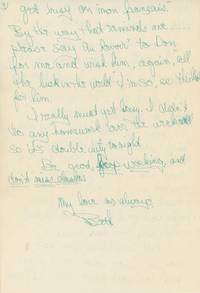 3)
got busy on mon français.
By the way that reminds me.....
please say "au revoir" to Don
for me and wish him, again, all
the luck in the world. I'm so,
for him
I really must get busy. I didn't
do any homework over the weekend
so it's double duty tonight.
Be good, keep working, and
don't miss classes
My love as always,